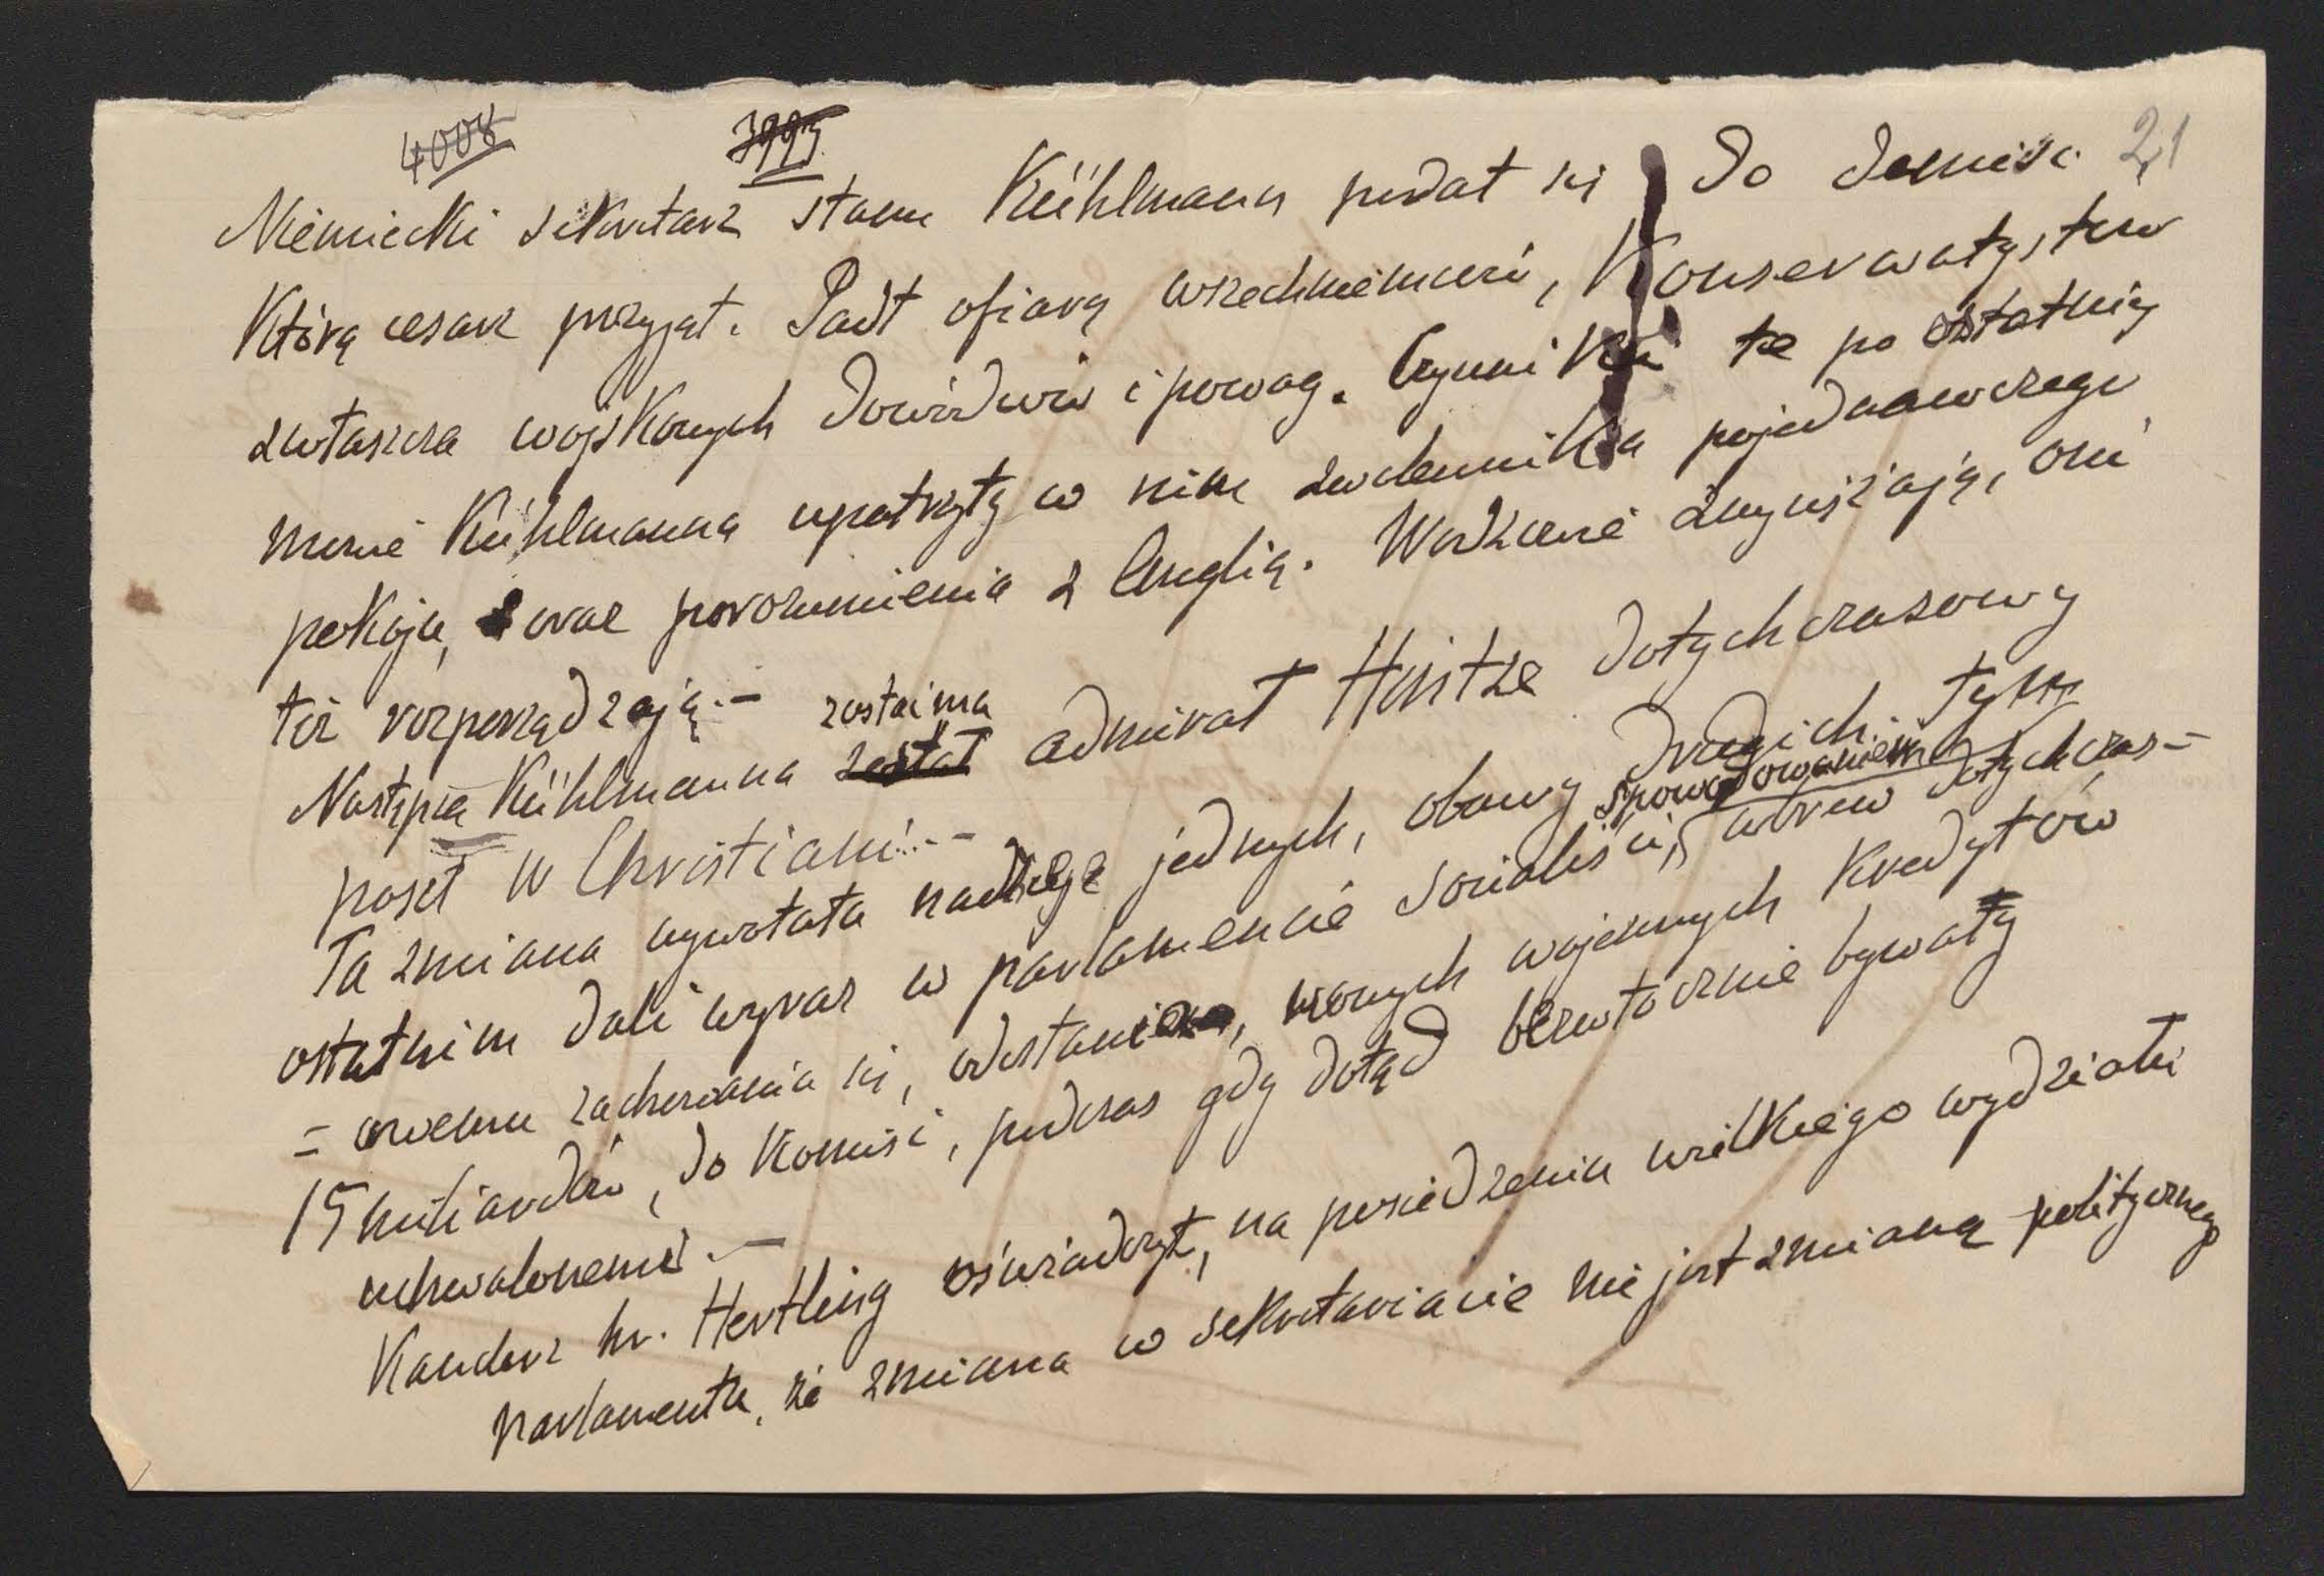 4008 3993 21
Niemiecki sekretarz stanu Kühlmann podał się do demisi
którą cesarz przyjął. Padł ofiarą wszechniemców, Konserwatystów
zwłaszcza wojskowych dowódców i powag. Czynniki te po ostatniej
mowie Kühlmanna upatrzyły w nim zwolennika pojednawczego
pokoju, oraz porozumienia z Anglią. Wodzowie zwyciężają, oni
też rozporządzają.–
Następcą Kühlmanna został zostaima admirał Heintze dotychczasowy
poseł w Christiani.–
Ta zmiana wywołała nadzieje jednych, obawy drugich. Tym
ostatnim dali wyraz w parlamencie socialiści, spowodowaniem wbrew dotychczas–
=owemu zachowania się, odesłania, nowych wojennych kredytów
15 miliardów, do Komisi, podczas gdy dotąd bezwłocznie bywały
uchwalonemi.–
Kanclerz hr. Hertling oświadczył, na posiedzeniu wielkiego wydziału
parlamentu, że zmiana w sekretariacie nie jest zmianą politycznego